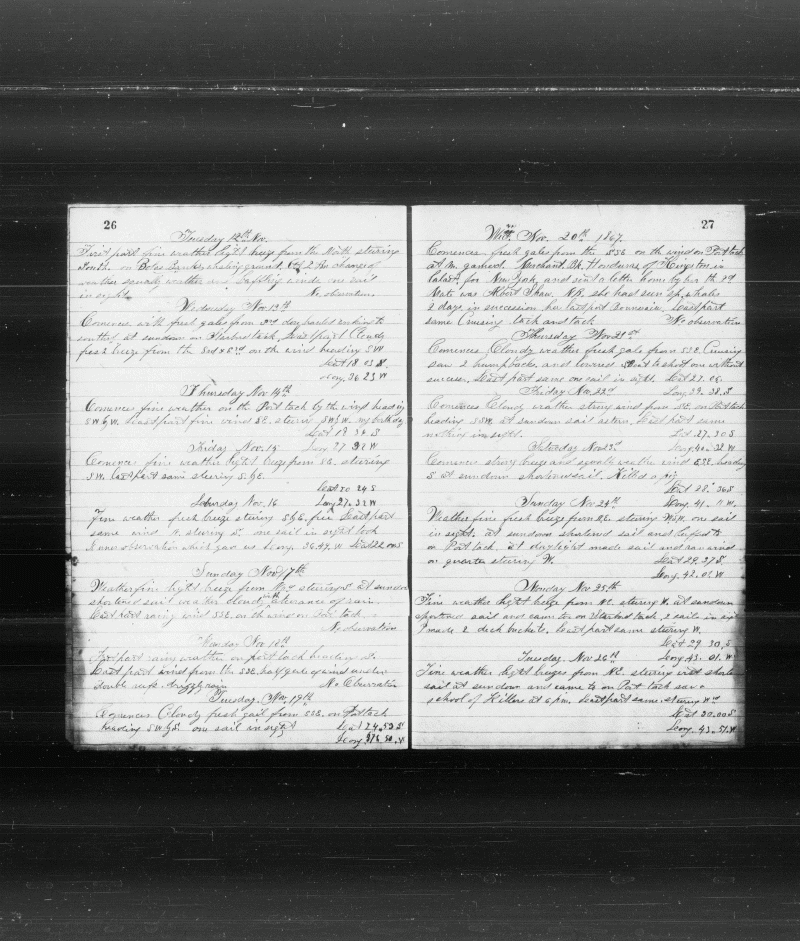 26
Tuesday 12th Nov.
First part fine weather light breeze from the North steering
South. on Boles Banks, shaling ground. 2 the change of
weather squaly weather and baffling winds one sail
in sight. No observation.
Wednesday Nov 13th
Comences with fresh gales from
south at sundown on Starbord tack, Last part Cloudy
fresh breeze from the on the wind heading SW
Lat 18.03 S
Long 36 23 W
Thursday Nov 14th
Comences fine weather on the Port tack by the wind heading
SW by W. Last part fine wind SE. steering SW by W. my birth day
Lat 19 34 S
Friday Nov. 15 Long 37 32 W
Comence fine weather light breeze from SE. steering
SW. last part same steering S by E.
Lat 20 24 S
Saturday Nov. 16 Long 37.32 W
Fine weather fresh breeze steering S by E. free Last part
same wind N. steering S. one sail in sight took
observation which gave us Long. 36.49. W Lat 22.00 S
Sunday Nov 17th
Weather fine light breeze from steering S at sundown
shortened sail weather cloudy with aperance of rain.
Last part rainy wind SSE. on the wind on Port tack
No observation
Monday Nov 18th
First part rainy weather on port tack heading S.
Last part wind from the SSE. half gale of wind under
double reefs. drizzly rain. No Observation
Tuesday, Nov. 19th
Comences Cloudy fresh gail from SSE. on Port tack
heading SW by S. one sail in sight Lat 24.53 S
Long W
27
Wed. Nov. 20th 1867.
Comences fresh gales from the SSE on the wind on Port tack
at M. gamed. Merchant Bk. Honduras, of Kingston in
for New York and sent a letter home by her the 2nd
Mate was Albert Shaw. N.B. she had seen Sp. whales
2 days in succession her last port Last part
same Cruising tack and tack No observation
Thursday Nov 21st
Comences Cloudy weather fresh gale from SSE. Cruising
saw 2 humpbacks and lowered Boat to shoot one without
success, Last part same one sail in sight. Lat 27.08
Friday Nov. 22nd Long 39.38. S
Comences Cloudy weather strong wind from SE. on Port tack
heading SSW. at sundown sail astern, Last part same
nothing in sight. Lat 27.30 S
Saturday Nov 23rd Long 40. 32 W
Comences strong breeze and squally weather wind ESE. heading
S. at sundown shortened sail. Killed a pig
Lat 28. 36 S
Sunday Nov 24th Long. 41. 11 W.
Weather fine fresh breeze from NE. steering one sail
in sight. at sundown shortened sail and luffed to
on Port tack. at daylight made sail and ran wind
on quarter steering W. Lat 29.37 S.
Long. 42.01 W.
Monday Nov 25th
Fine weather light breeze from NE. steering W. at sundown
shortened sail and came too on Starbord tack, 2 sails in sight
I made 2 deck buckets. Last part same steering W.
Lat 29 30, S
Tuesday, Nov 26th Long 43. 01. W
Fine weather light breezes from NE. steering west shortened
sail at sundown and came to on Port tack saw a
school of Killers at 6 P.M. Last part same. steering
Lat 30.00 S
Long. 43. 57. W